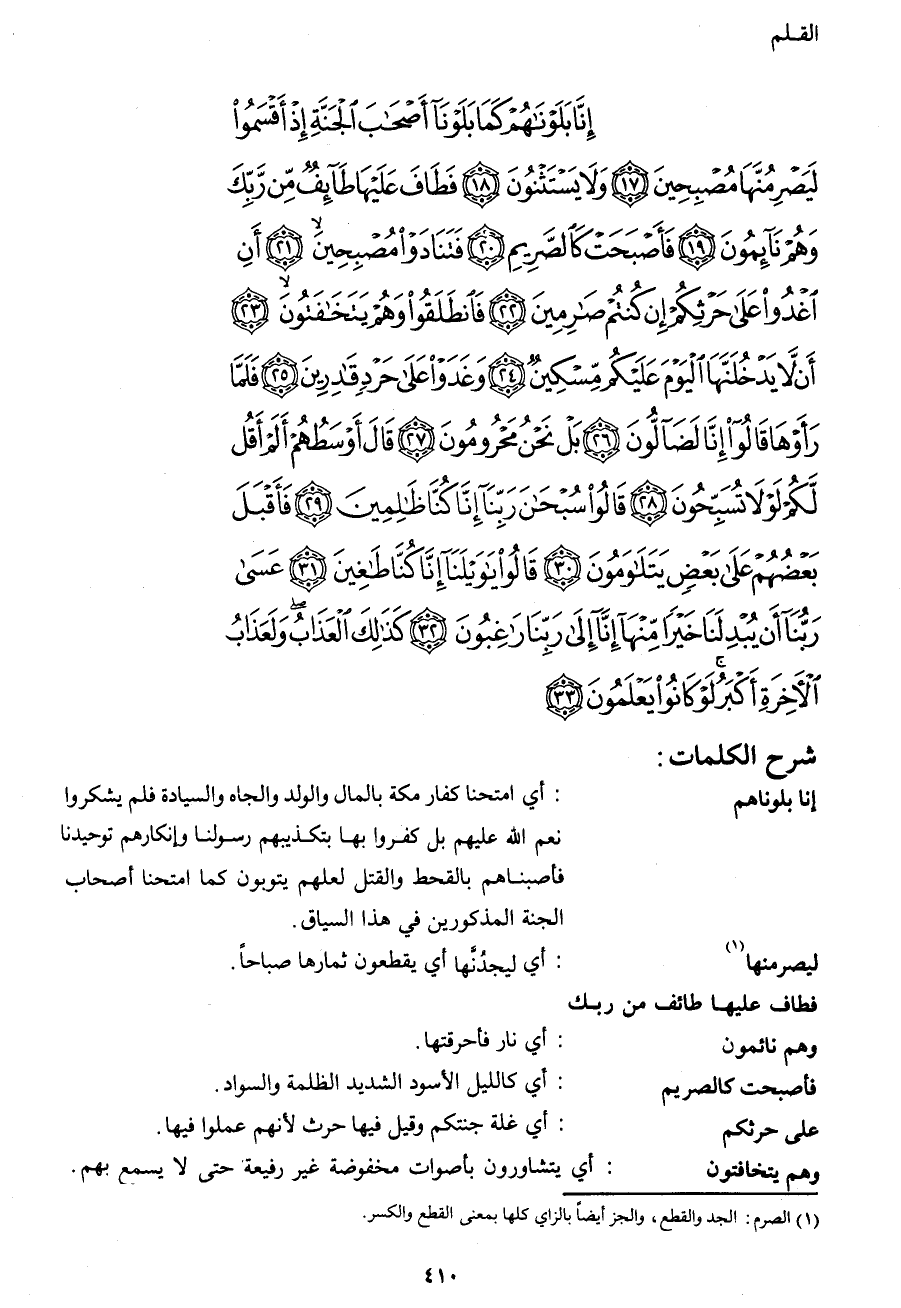 القـلم
إِنَّا بَلَوْنَٰهُمْ كَمَا بَلَوْنَآ أَصْحَٰبَ ٱلْجَنَّةِ إِذْ أَقْسَمُوا۟
لَيَصْرِمُنَّهَا مُصْبِحِينَ ﴿١٧﴾ وَلَا يَسْتَثْنُونَ ﴿١٨﴾ فَطَافَ عَلَيْهَا طَآئِفٌ مِّن رَّبِّكَ
وَهُمْ نَآئِمُونَ ﴿١٩﴾ فَأَصْبَحَتْ كَٱلصَّرِيمِ ﴿٢٠﴾ فَتَنَادَوْا۟ مُصْبِحِينَ ﴿٢١﴾ أَنِ
ٱغْدُوا۟ عَلَىٰ حَرْثِكُمْ إِن كُنتُمْ صَٰرِمِينَ ﴿٢٢﴾ فَٱنطَلَقُوا۟ وَهُمْ يَتَخَٰفَتُونَ ﴿٢٣﴾
أَن لَّا يَدْخُلَنَّهَا ٱلْيَوْمَ عَلَيْكُم مِّسْكِينٌ ﴿٢٤﴾ وَغَدَوْا۟ عَلَىٰ حَرْدٍ قَٰدِرِينَ ﴿٢٥﴾ فَلَمَّا
رَأَوْهَا قَالُوٓا۟ إِنَّا لَضَآلُّونَ ﴿٢٦﴾ بَلْ نَحْنُ مَحْرُومُونَ ﴿٢٧﴾ قَالَ أَوْسَطُهُمْ أَلَمْ أَقُل
لَّكُمْ لَوْلَا تُسَبِّحُونَ ﴿٢٨﴾ قَالُوا۟ سُبْحَٰنَ رَبِّنَآ إِنَّا كُنَّا ظَٰلِمِينَ ﴿٢٩﴾ فَأَقْبَلَ
بَعْضُهُمْ عَلَىٰ بَعْضٍ يَتَلَٰوَمُونَ ﴿٣٠﴾ قَالُوا۟ يَٰوَيْلَنَآ إِنَّا كُنَّا طَٰغِينَ ﴿٣١﴾ عَسَىٰ
رَبُّنَآ أَن يُبْدِلَنَا خَيْرًا مِّنْهَآ إِنَّآ إِلَىٰ رَبِّنَا رَٰغِبُونَ ﴿٣٢﴾ كَذَٰلِكَ ٱلْعَذَابُ ۖ وَلَعَذَابُ
ٱلْأَخِرَةِ أَكْبَرُ ۚ لَوْ كَانُوا۟ يَعْلَمُونَ ﴿٣٣﴾
شرح الكلمات :
إنا بلوناهم : أي امتحنا كفار مكة بالمال والولد والجاه والسيادة فلم يشكروا
نعم الله عليهم بل كفـروا بهـا بتكـذيبهم رسـولنـا وإنكارهم توحيدنا
فأصبنـاهم بالقحط والقتل لعلهم يتوبون كما امتحنا أصحاب
الجنة المذكورين في هذا السياق .
ليصرمنها(١) : أي ليجدُنَّها أي يقطعون ثمارها صباحاً .
فطاف عليهـا طائف من ربـك
وهم نائمون : أي نار فأحرقتها .
فأصبحت كالصريم : أي كالليل الأسود الشديد الظلمة والسواد .
على حرثكم : أي غلة جنتكم وقيل فيها حرث لأنهم عملوا فيها .
وهم يتخافتون : أي يتشاورون بأصوات مخفوضة غير رفيعة حتى لا يسمع بهم .
(١) الصرم : الجد والقطع ، والجز أيضاً بالزاي كلها بمعنى القطع والكسر .
٤١٠